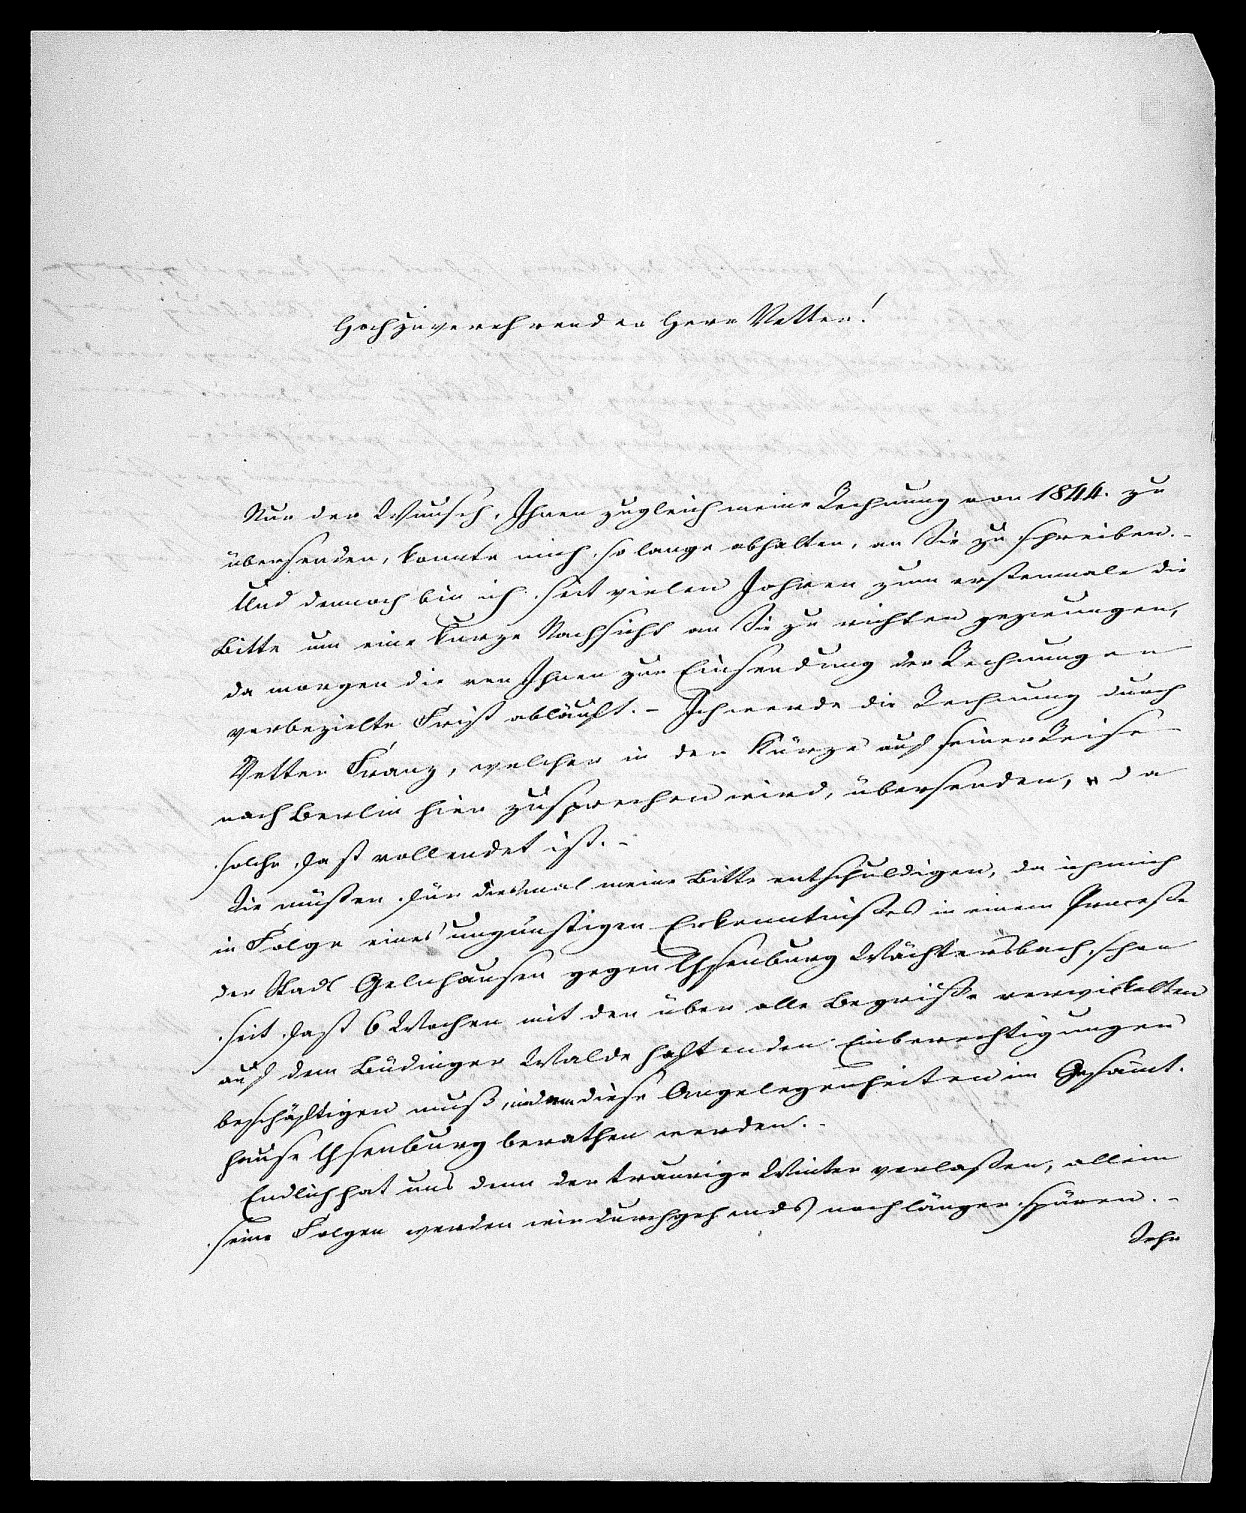 Hochzuverehrender Herr Vetter!
Nur der Wunsch, Ihnen zugleich meine Rechnung von 1844. zu
übersenden, konnte mich so lange abhalten, an Sie zu schreiben. –
Und dennoch bin ich seit vielen Jahren zum erstenmale die
Bitte um eine kurze Nachsicht an Sie zu richten gezwungen,
da morgen die von Ihnen zur Einsendung der Rechnungen
vorbezielte Frist abläuft. – Ich werde die Rechnung durch
Vetter Franz, welcher in der Kürze auf seiner Reise
nach Berlin hier zusprechen wird, übersenden, da
solche fast vollendet ist. –
Sie müßen für diesmal meine Bitte entschuldigen, da ich mich
in Folge eines ungünstigen Erkenntnißes in einem Proceße
der Stadt Gelnhausen gegen Ysenburg Wächtersbach schon
seit fast 6 Wochen mit den über alle Begriffe verwickelten
auf dem Büdinger Walde haftenden Einberechtigungen
beschäftigen muß, indem diese Angelegenheiten im Gesamt-
hause Ysenburg berathen werden. –
Endlich hat uns denn der traurige Winter verlaßen, allein
seine Folgen werden wir durchgehends noch länger spüren. –
Sehr